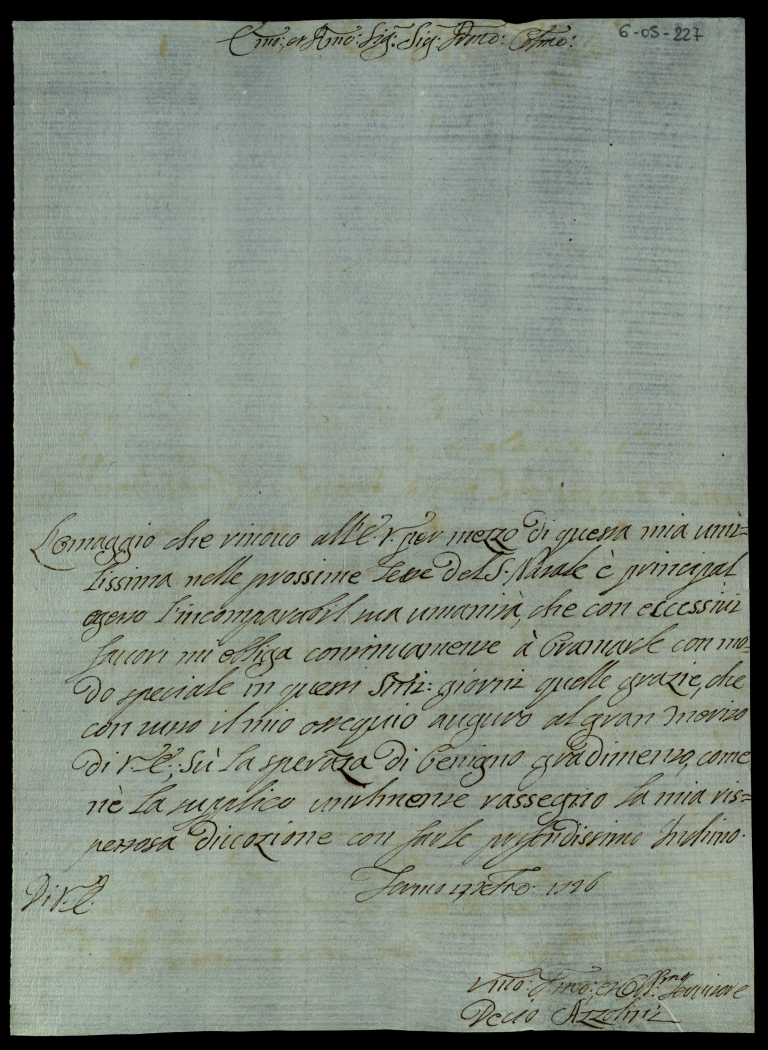 Emo: et Rmo: Sig.r Sig.r Prone: Colmo:
6-05-227
L'omaggio che rinovo all'E. V. per mezzo di questa mia umi=
lissima nelle prossime feste del S. Natale è principal
ogetto l'incomparabil sua umanità, che con eccessivi
favori mi obliga continuamente à bramarle con mo=
do speciale in questi Smi: giorni quelle grazie, che
con tutto il mio ossequio auguro al gran merito
di V. E.; sù la speranza di benigno gradimento, come
nè la supplico umilmente rassegno la mia ris=
pettosa divozione con farle profondissimo inchino.
Di V. E.
Fermo 1726
Umo: et Servitore
Decio Azzolini